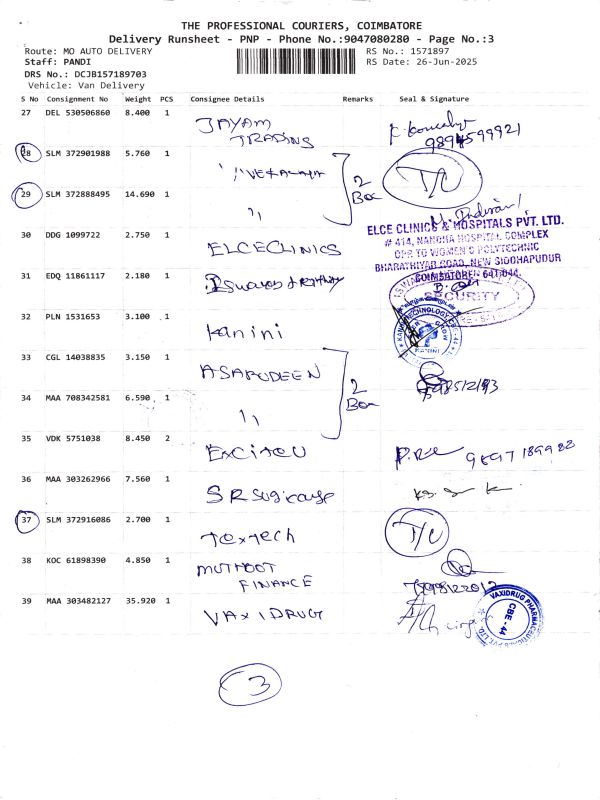 THE PROFESSIONAL COURIERS, COIMBATORE
Delivery Runsheet - PNP - Phone No.:9047080280 - Page No.:3
Route: MO AUTO DELIVERY RS No.: 1571897
Staff: PANDI RS Date: 26-Jun-2025
DRS No.: DCJB157189703
Vehicle: Van Delivery
S No Consignment No Weight PCS Consignee Details Remarks Seal & Signature
27 DEL 530506860 8.400 1 JAYAM TRADING
28 SLM 372901988 5.760 1 T/C
29 SLM 372888495 14.690 1 ,,
2 Box
30 DDG 1099722 2.750 1 ELCECLINICS
ELCE CLINICS & HOSPITALS PVT. LTD.
# 414, NANCHA HOSPITAL COMPLEX
OPP. TO WOMEN'S POLYTECHNIC
BHARATHIYAR ROAD, NEW SIDDHAPUDUR
COIMBATORE - 641 044.
31 EDQ 11861117 2.180 1
SECURITY
32 PLN 1531653 3.100 1 Kanini
KANINI
33 CGL 14038835 3.150 1 ASARUDEEN
34 MAA 708342581 6.590 1 ,,
2 Box
35 VDK 5751038 8.450 2
36 MAA 303262966 7.560 1 SR
37 SLM 372916086 2.700 1 Textech T/C
38 KOC 61898390 4.850 1 MUTHOOT FINANCE
39 MAA 303482127 35.920 1 VAXIDRUG
VAXIDRUG PHARMACEUTICALS PVT. LTD.
CBE - 44
3